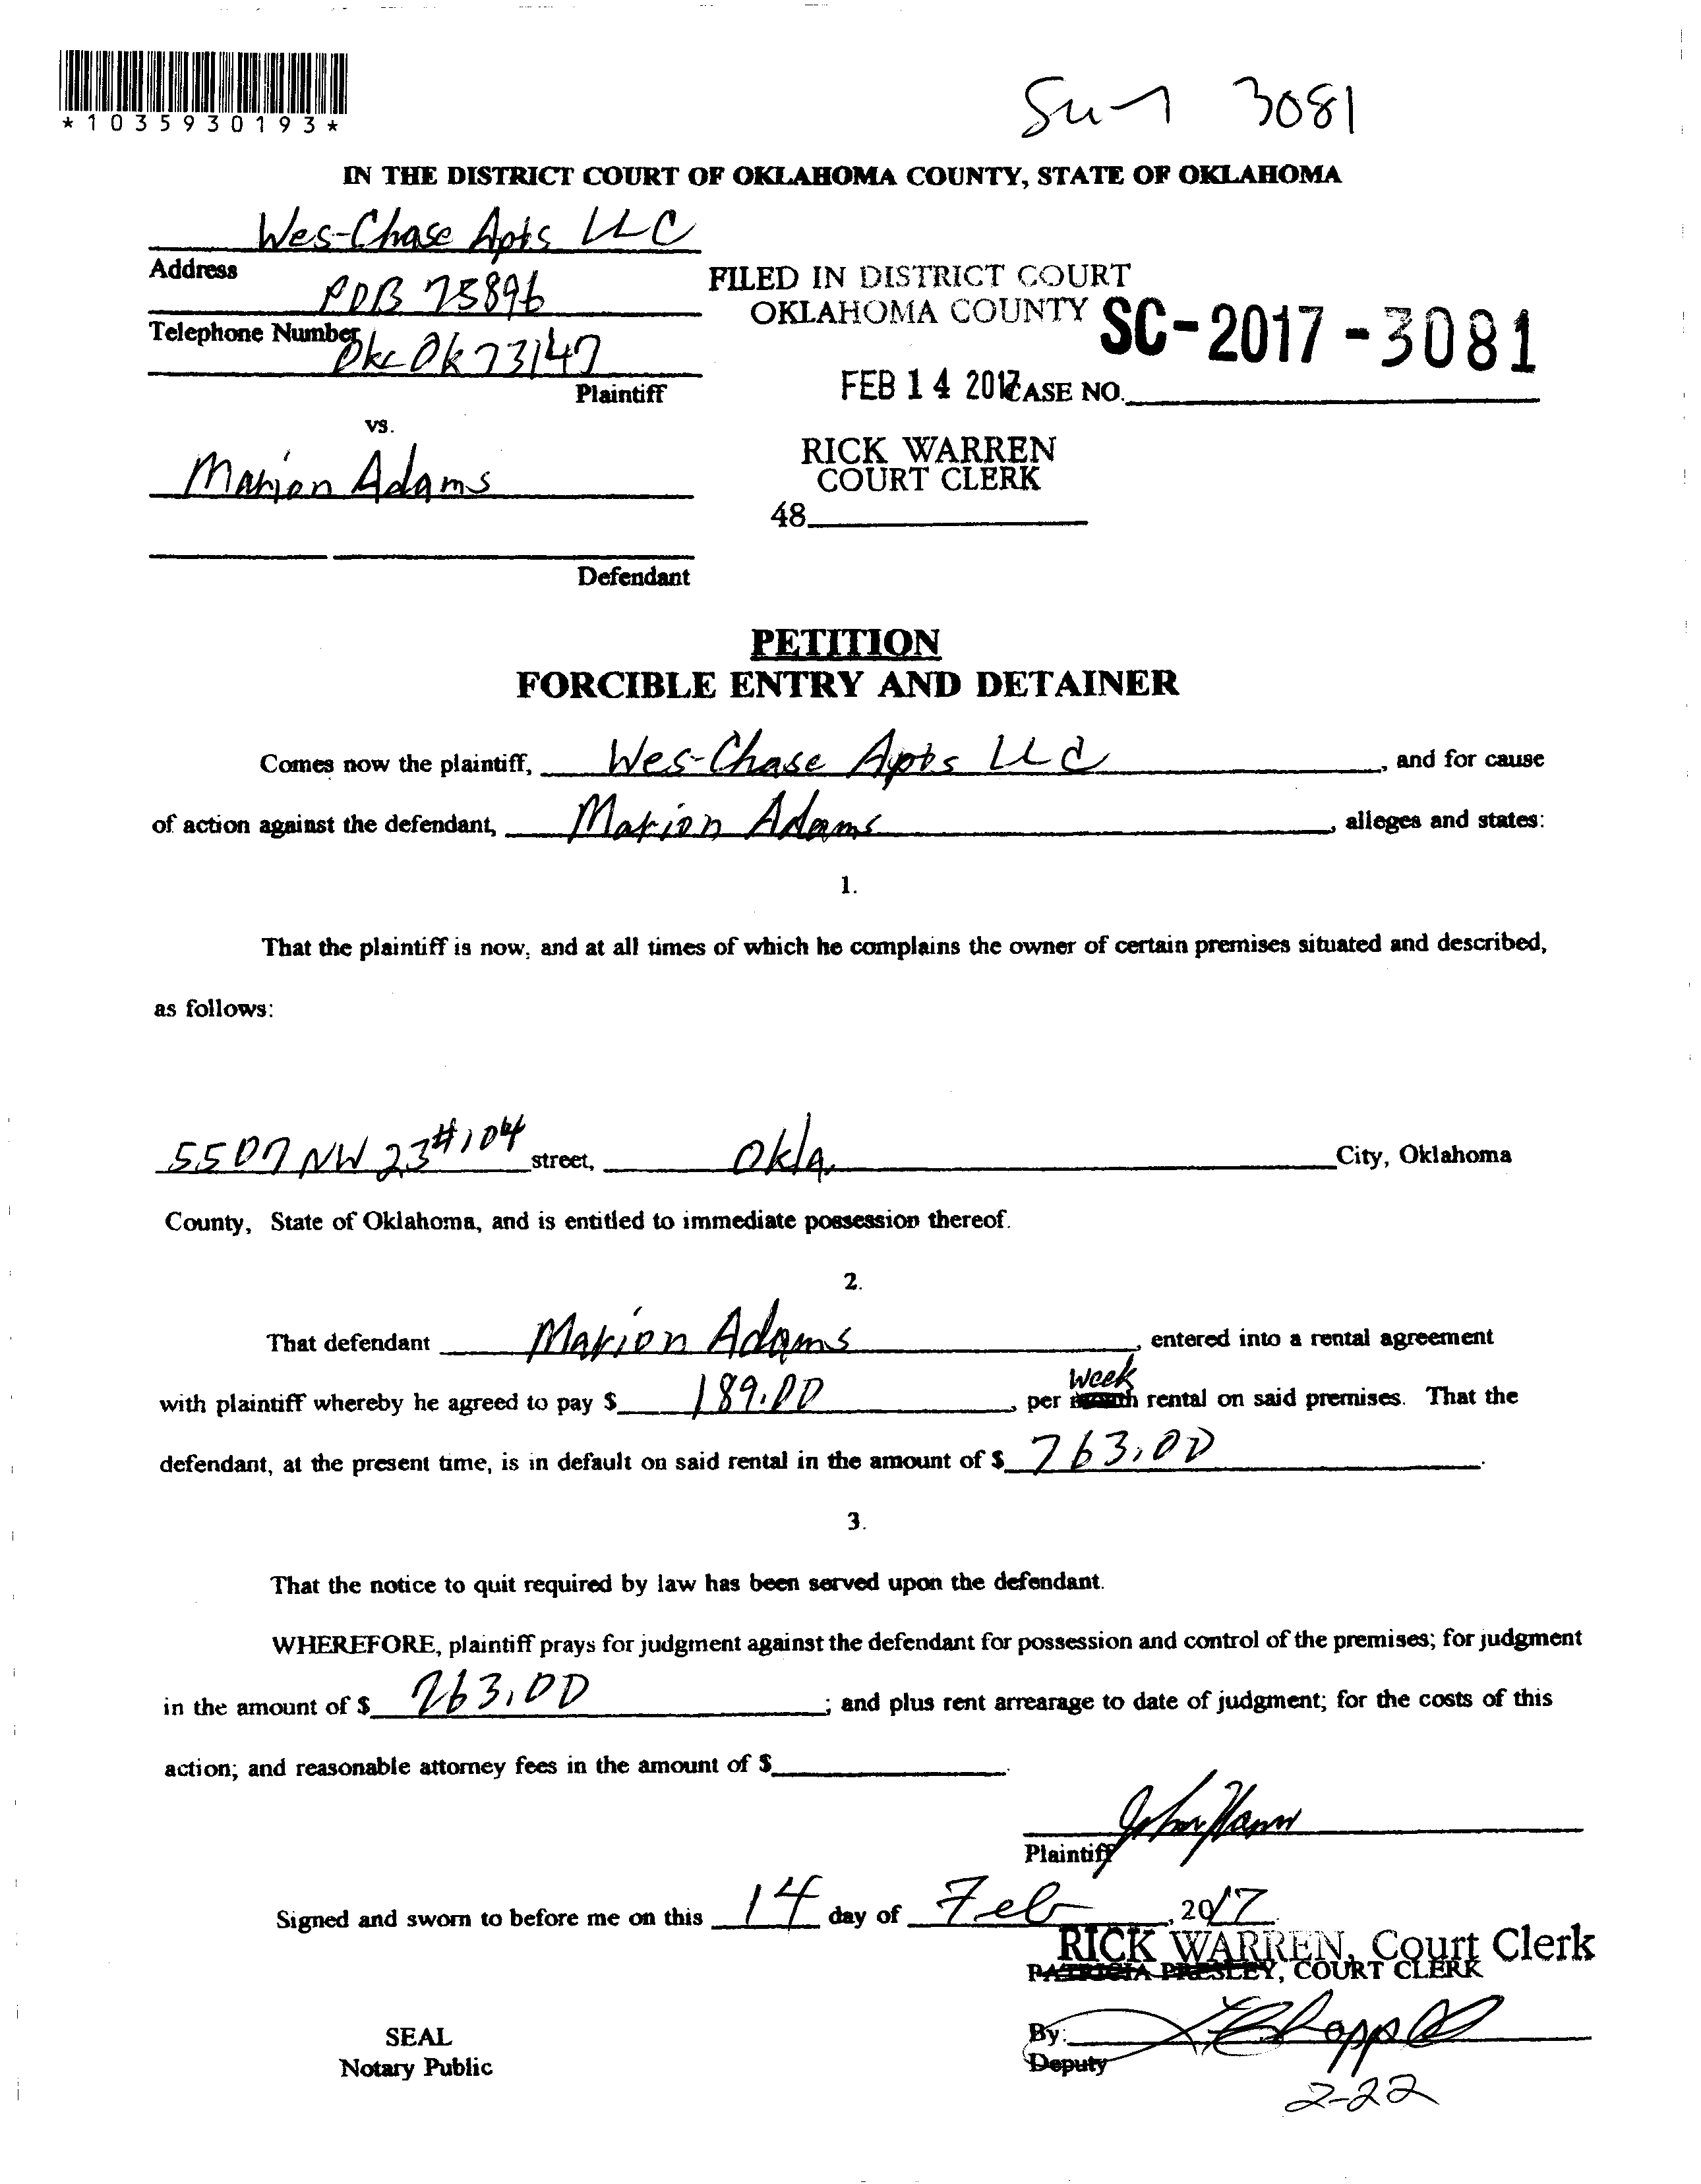 *1035930193*
3081
IN THE DISTRICT COURT OF OKLAHOMA COUNTY, STATE OF OKLAHOMA
Wes-Chase Apts LLC
Address
POB 75896
Telephone Number
Okc Ok 73147
Plaintiff
FILED IN DISTRICT COURT
OKLAHOMA COUNTY
SC-2017-3081
FEB 14 2017 CASE NO.
vs.
RICK WARREN
COURT CLERK
Marion Adams
48
Defendant
PETITION
FORCIBLE ENTRY AND DETAINER
Comes now the plaintiff, Wes-Chase Apts LLC, and for cause
of action against the defendant, Marion Adams, alleges and states:
1.
That the plaintiff is now, and at all times of which he complains the owner of certain premises situated and described,
as follows:
5507 NW 23 #104 street, Okla. City, Oklahoma
County, State of Oklahoma, and is entitled to immediate possession thereof.
2.
That defendant Marion Adams, entered into a rental agreement
with plaintiff whereby he agreed to pay $ 189.00, per month week rental on said premises. That the
defendant, at the present time, is in default on said rental in the amount of $ 763.00.
3.
That the notice to quit required by law has been served upon the defendant.
WHEREFORE, plaintiff prays for judgment against the defendant for possession and control of the premises; for judgment
in the amount of $ 763.00; and plus rent arrearage to date of judgment; for the costs of this
action; and reasonable attorney fees in the amount of $.
Plaintiff
Signed and sworn to before me on this 14 day of Feb, 2017
RICK WARREN, Court Clerk
PATRICIA PRESLEY, COURT CLERK
SEAL
Notary Public
By:
Deputy
2-22